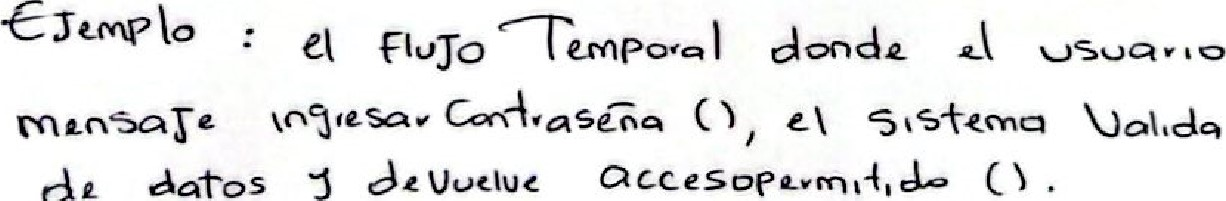 Ejemplo : el Flujo Temporal donde el usuario
mensaje ingresar Contraseña (), el sistema Valida
de datos y devuelve accesopermitido ().